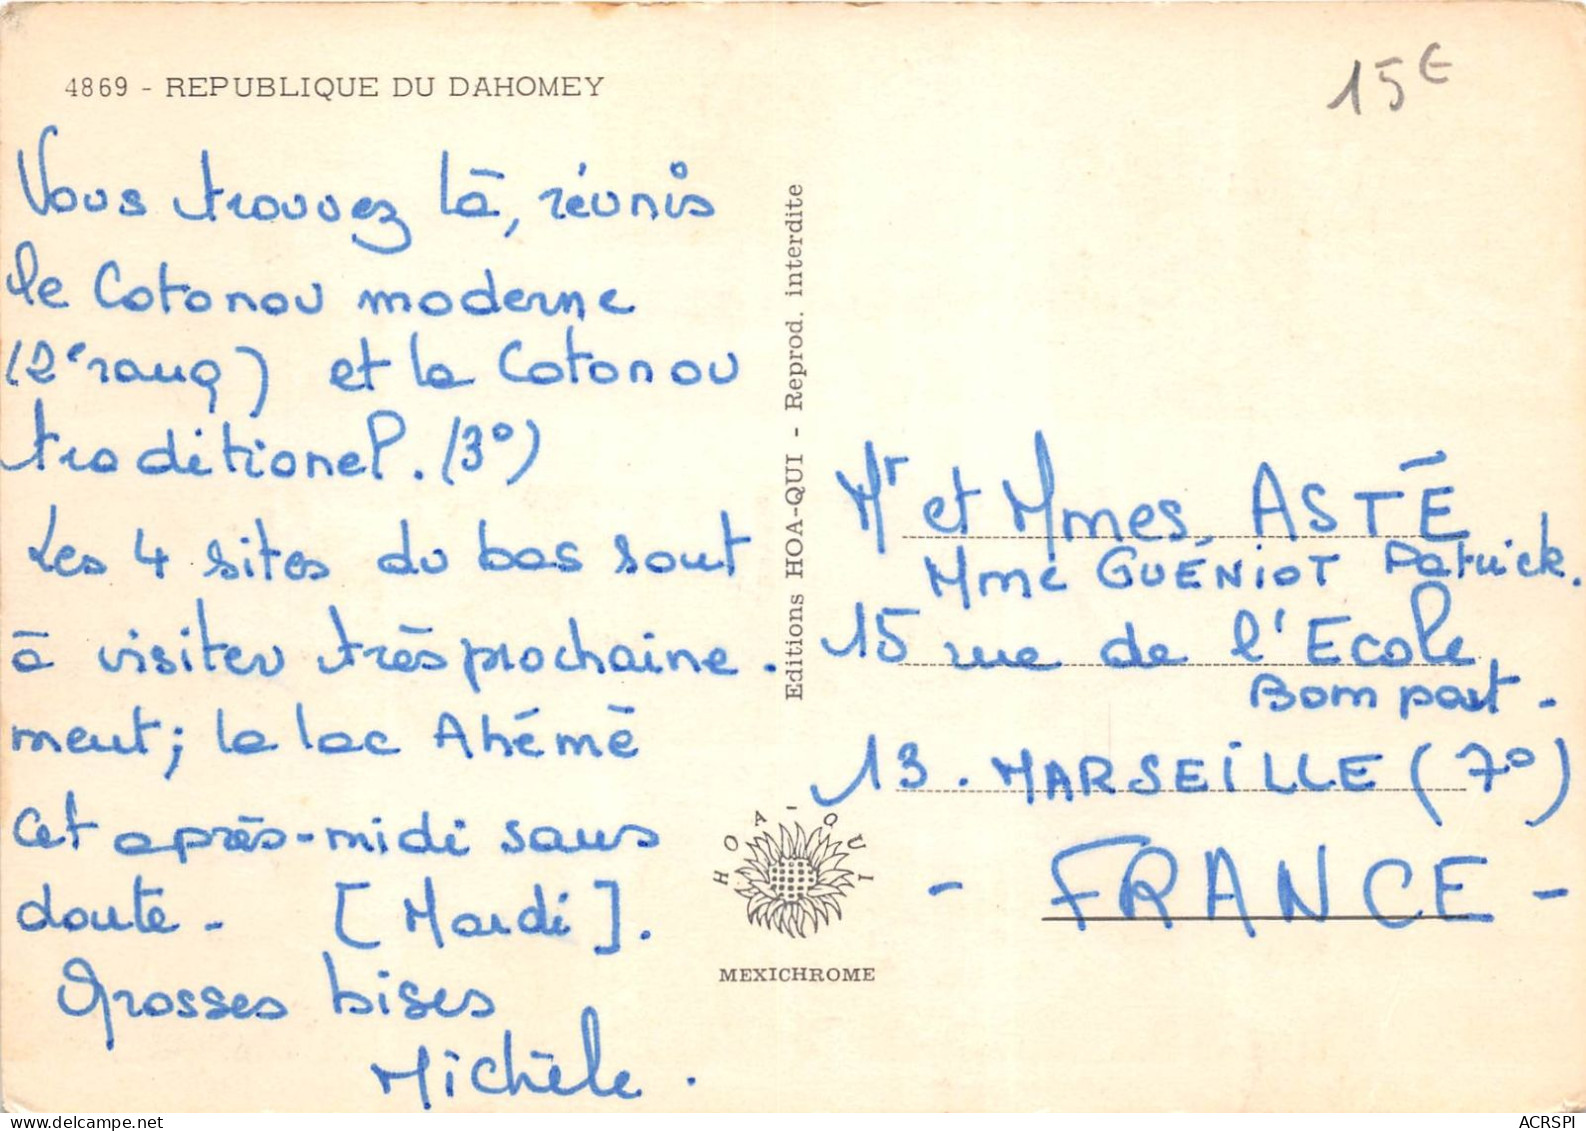 4869 - REPUBLIQUE DU DAHOMEY
15€
Vous trouvez là, réunis
le Cotonou moderne
(2e rang) et le Cotonou
traditionel. (3°)
Les 4 sites du bas sont
à visiter très prochaine-
ment; le lac Ahémé
cet après-midi sans
doute - [Mardi].
Grosses bises
Michèle.
Editions HOA-QUI - Reprod. interdite
HOA-QUI
MEXICHROME
Mr et Mmes, ASTÉ
Mme GUÉNIOT Patrick.
15 rue de l'Ecole
Bompart -
13. MARSEILLE (7°)
- FRANCE -
www.delcampe.net
ACRSPI